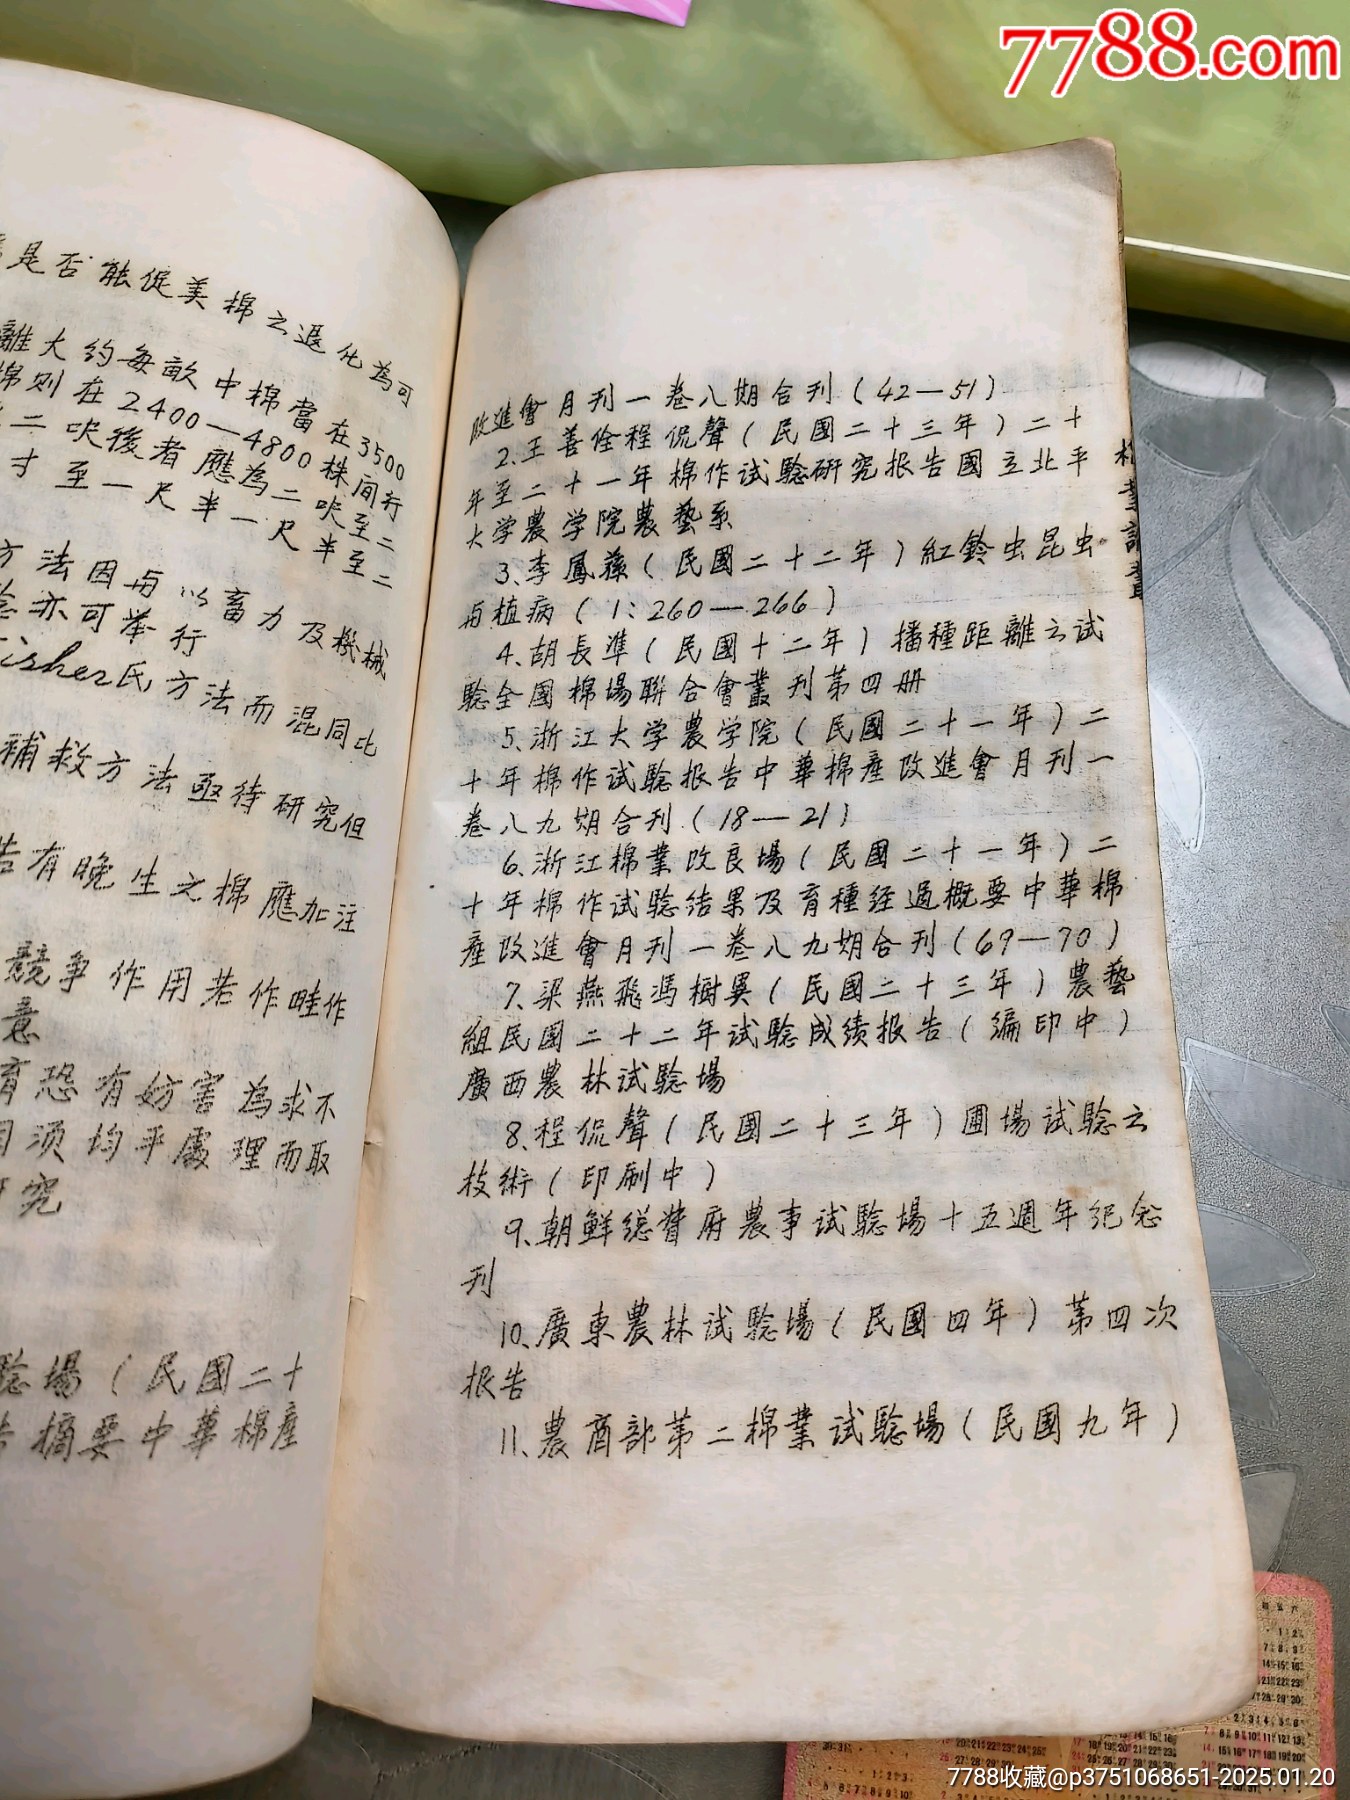 7788.com
是否能促美棉之退化為可
離大約每畝中棉當在3500
棉则在2400—4800株间行
二呎後者應為二呎至二
寸至一尺半一尺半至二
方法因与以畜力及機械
亦可举行
isher氏方法而混同比
補救方法亟待研究但
告有晚生之棉應加注
競争作用若作畦作
意
育恐有妨害為求不
须均平處理而取
研究
验場(民國二十
告摘要中華棉產
改進會月刊一卷八期合刊(42—51)
2.王善佺程侃聲(民國二十三年)二十
年至二十一年棉作試驗研究报告國立北平
大学農学院農藝系
3.李鳳蓀(民國二十二年)紅鈴虫昆虫
与植病(1:260—266)
4.胡長準(民國十二年)播種距離之試
驗全國棉場聯合會叢刊第四册
5.浙江大学農学院(民國二十一年)二
十年棉作試驗报告中華棉產改進會月刊一
卷八九期合刊(18—21)
6.浙江棉業改良場(民國二十一年)二
十年棉作試驗结果及育種经過概要中華棉
產改進會月刊一卷八九期合刊(69—70)
7.梁燕飛馮樹異(民國二十三年)農藝
組民國二十二年試驗成績报告(编印中)
廣西農林試驗場
8.程侃聲(民國二十三年)圃場試驗之
技術(印刷中)
9.朝鮮総督府農事試驗場十五週年纪念
刊
10.廣東農林試驗場(民國四年)第四次
报告
11.農商部第二棉業試驗場(民國九年)
7788收藏@p3751068651-2025.01.20